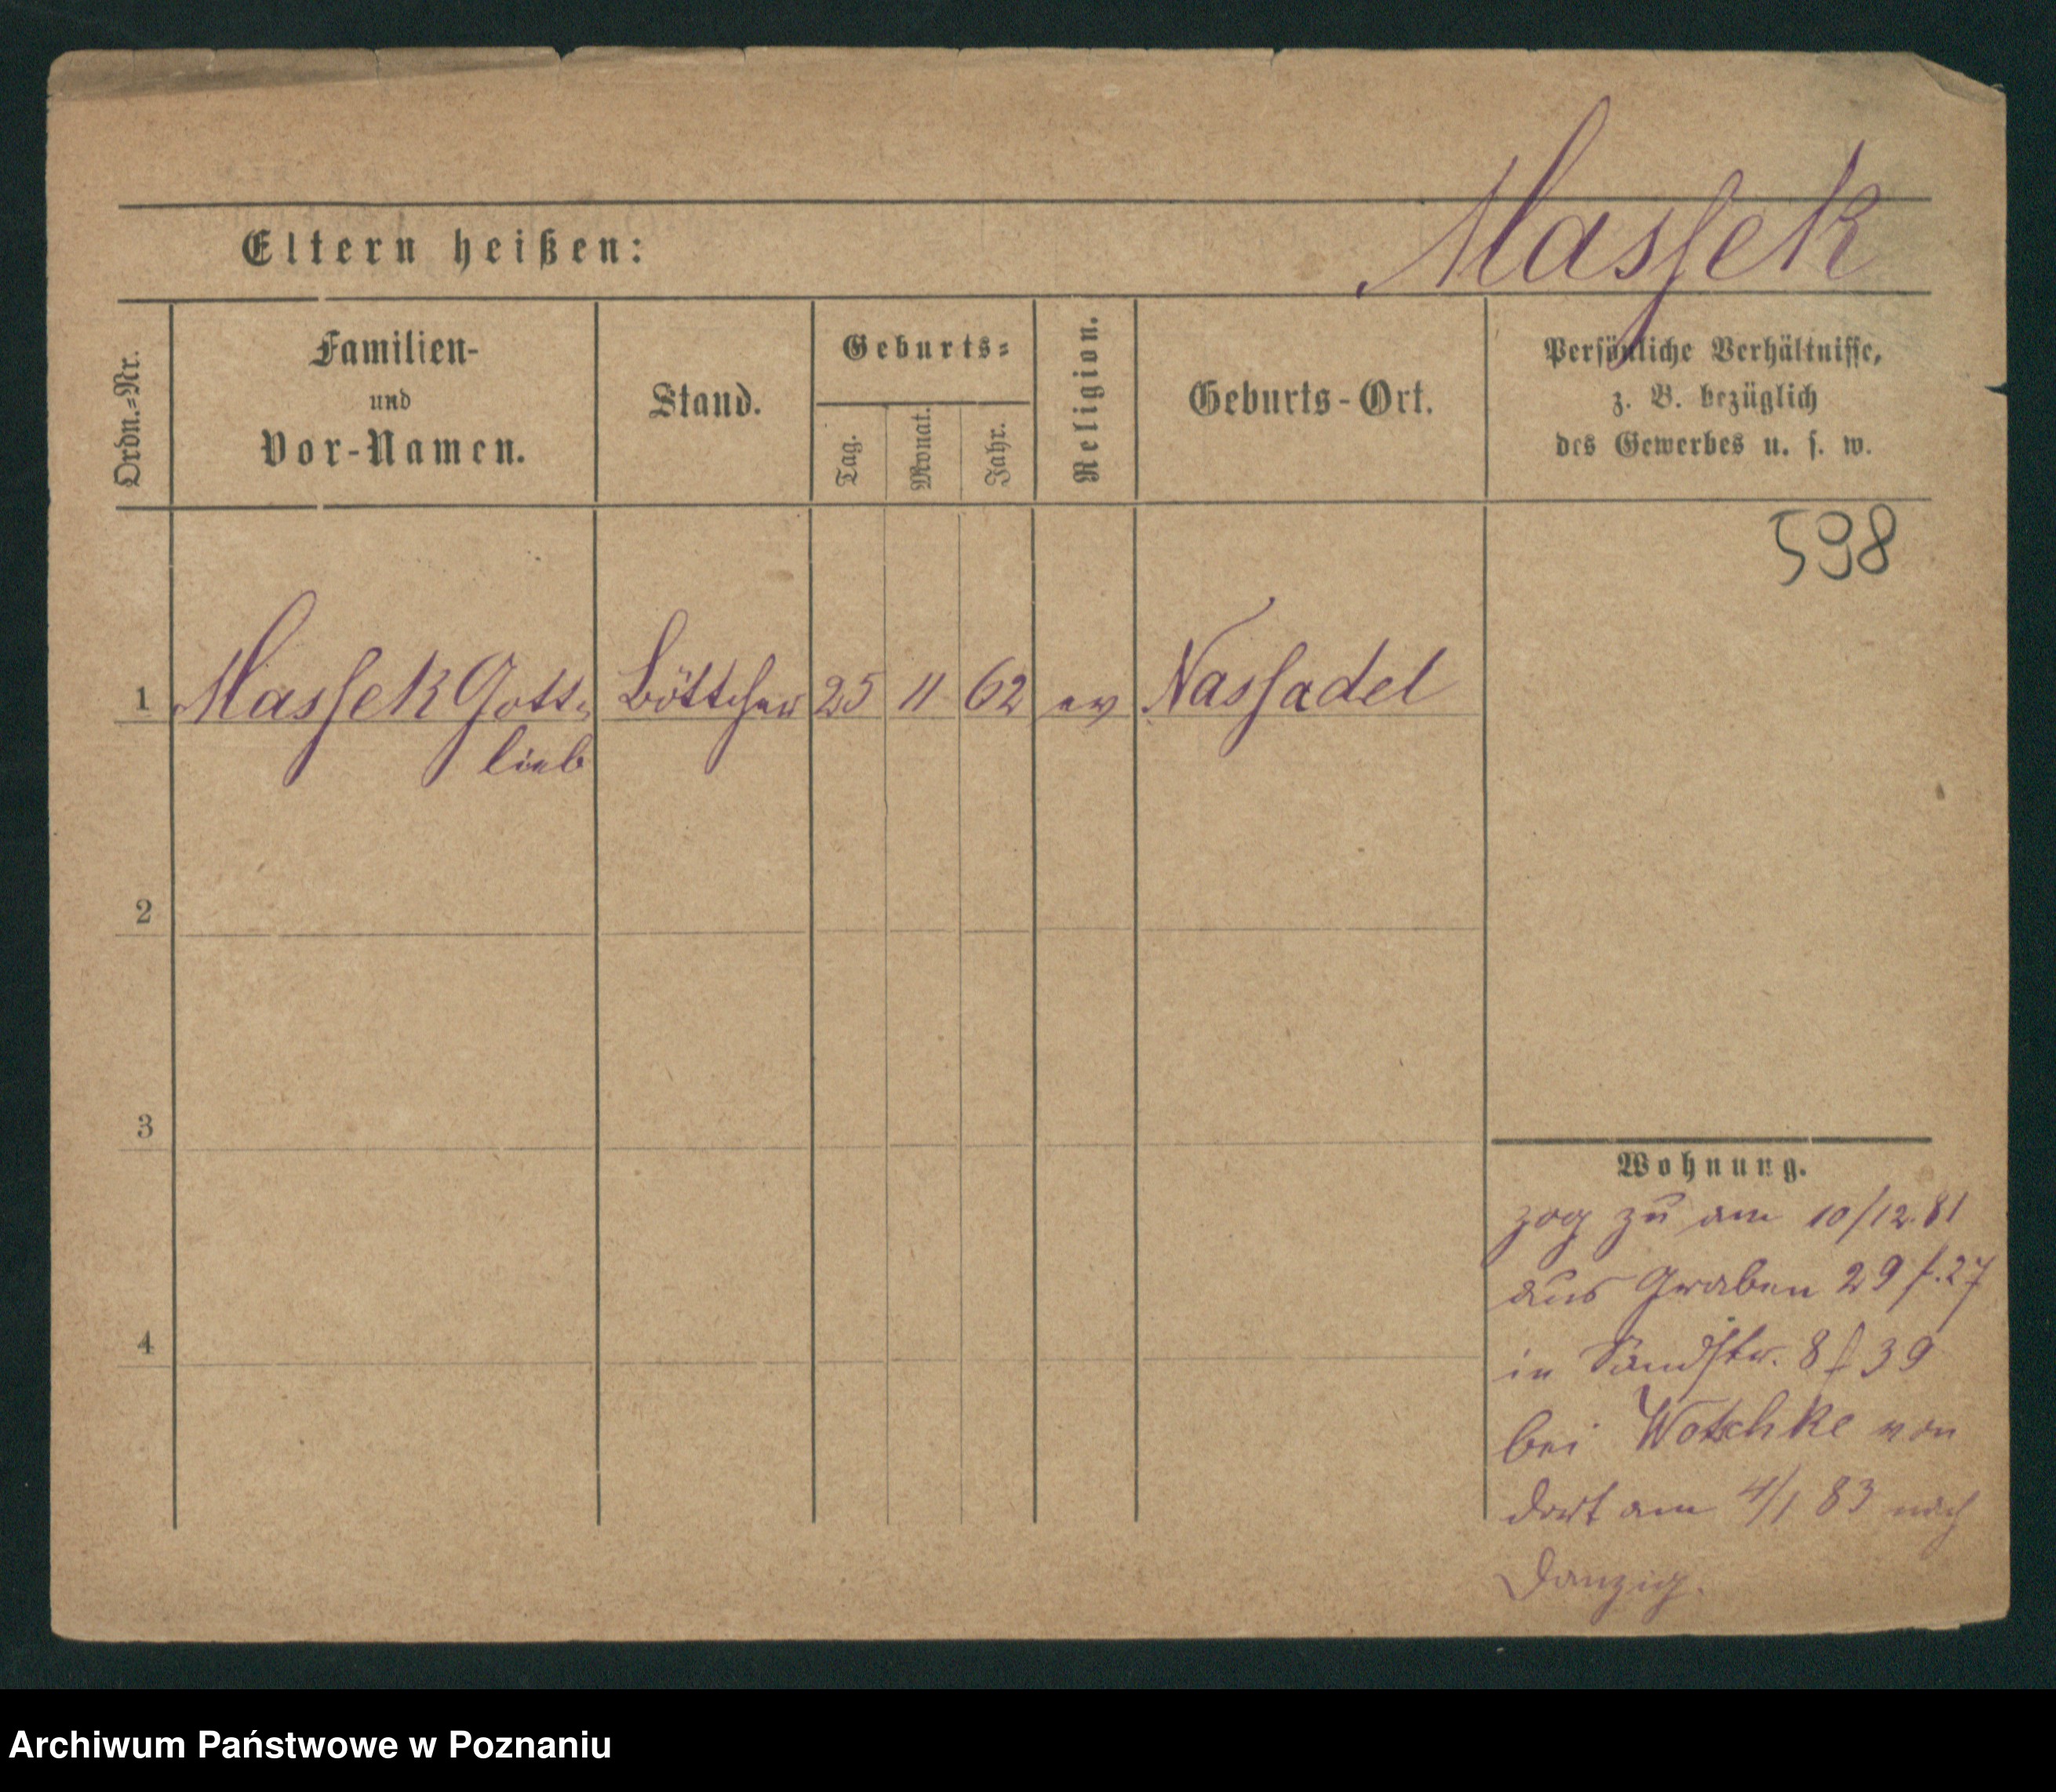 Massek
Eltern heißen:
Ordn.-Nr.
Familien-
und
Vor-Namen.
Stand.
Geburts-
Tag.
Monat.
Jahr.
Religion.
Geburts-Ort.
Persönliche Verhältnisse,
z. B. bezüglich
des Gewerbes u. s. w.
598
1 Massek Gott- Böttcher 25 11 62 ev Nassadel
lieb
2
3
4
Wohnung.
zog zu am 10/12.81
aus Graben 29 f. 27
in Sandstr. 8 f 39
bei Wotschke von
dort am 4/1 83 nach
Danzig.
Archiwum Państwowe w Poznaniu